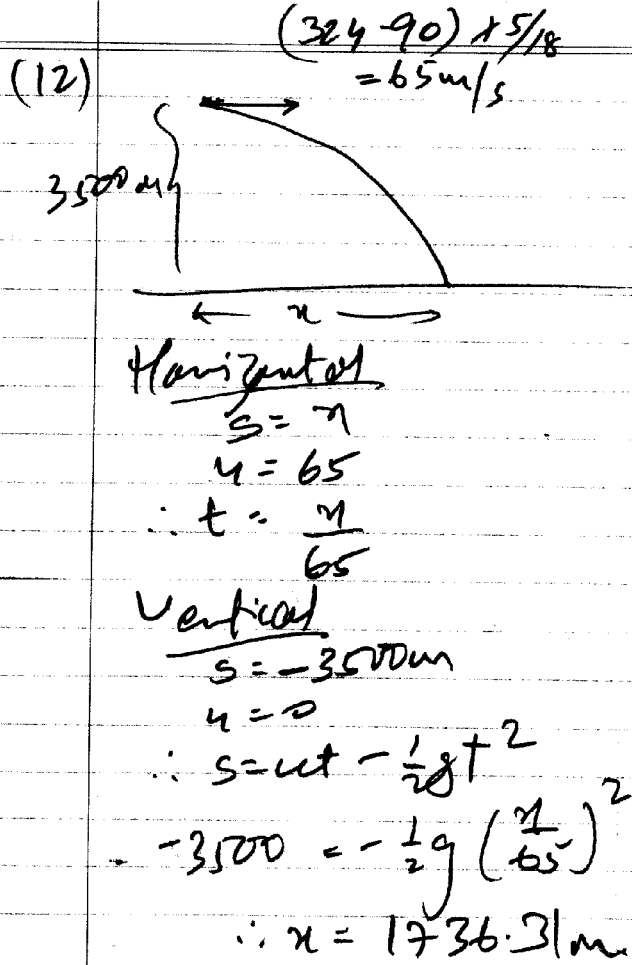 (324-90) x 5/18
= 65 m/s
(12)
3500 m
x
Horizontal
s = x
u = 65
∴ t = x/65
Vertical
s = -3500m
u = 0
∴ s = ut - 1/2 gt²
-3500 = - 1/2 g (x/65)²
∴ x = 1736.31m